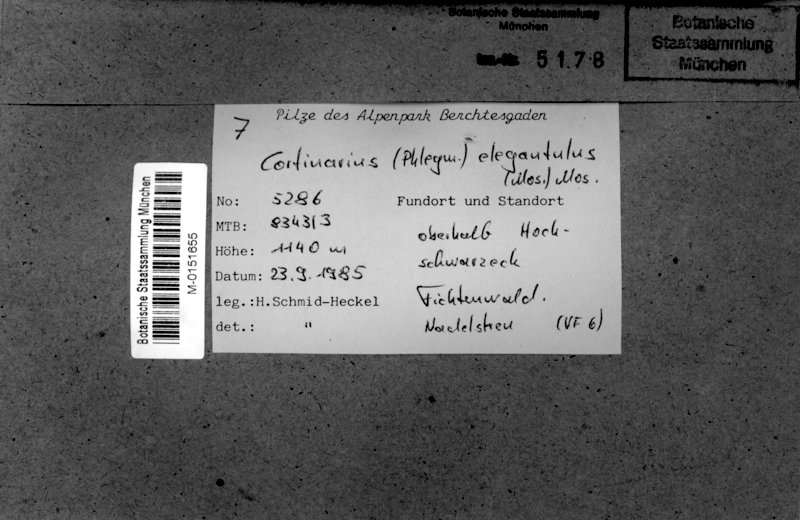 Botanische Staatssammlung
München
51.78
Botanische
Staatssammlung
München
7
Pilze des Alpenpark Berchtesgaden
Cortinarius (Phlegm.) elegantulus
(Mos.) Mos.
No: 5286
MTB: 8343/3
Höhe: 1140 m
Datum: 23.9.1985
leg.: H.Schmid-Heckel
det.: "
Fundort und Standort
oberhalb Hoch-
schwarzeck
Fichtenwald.
Nadelstreu (VF 6)
Botanische Staatssammlung München
M-0151655